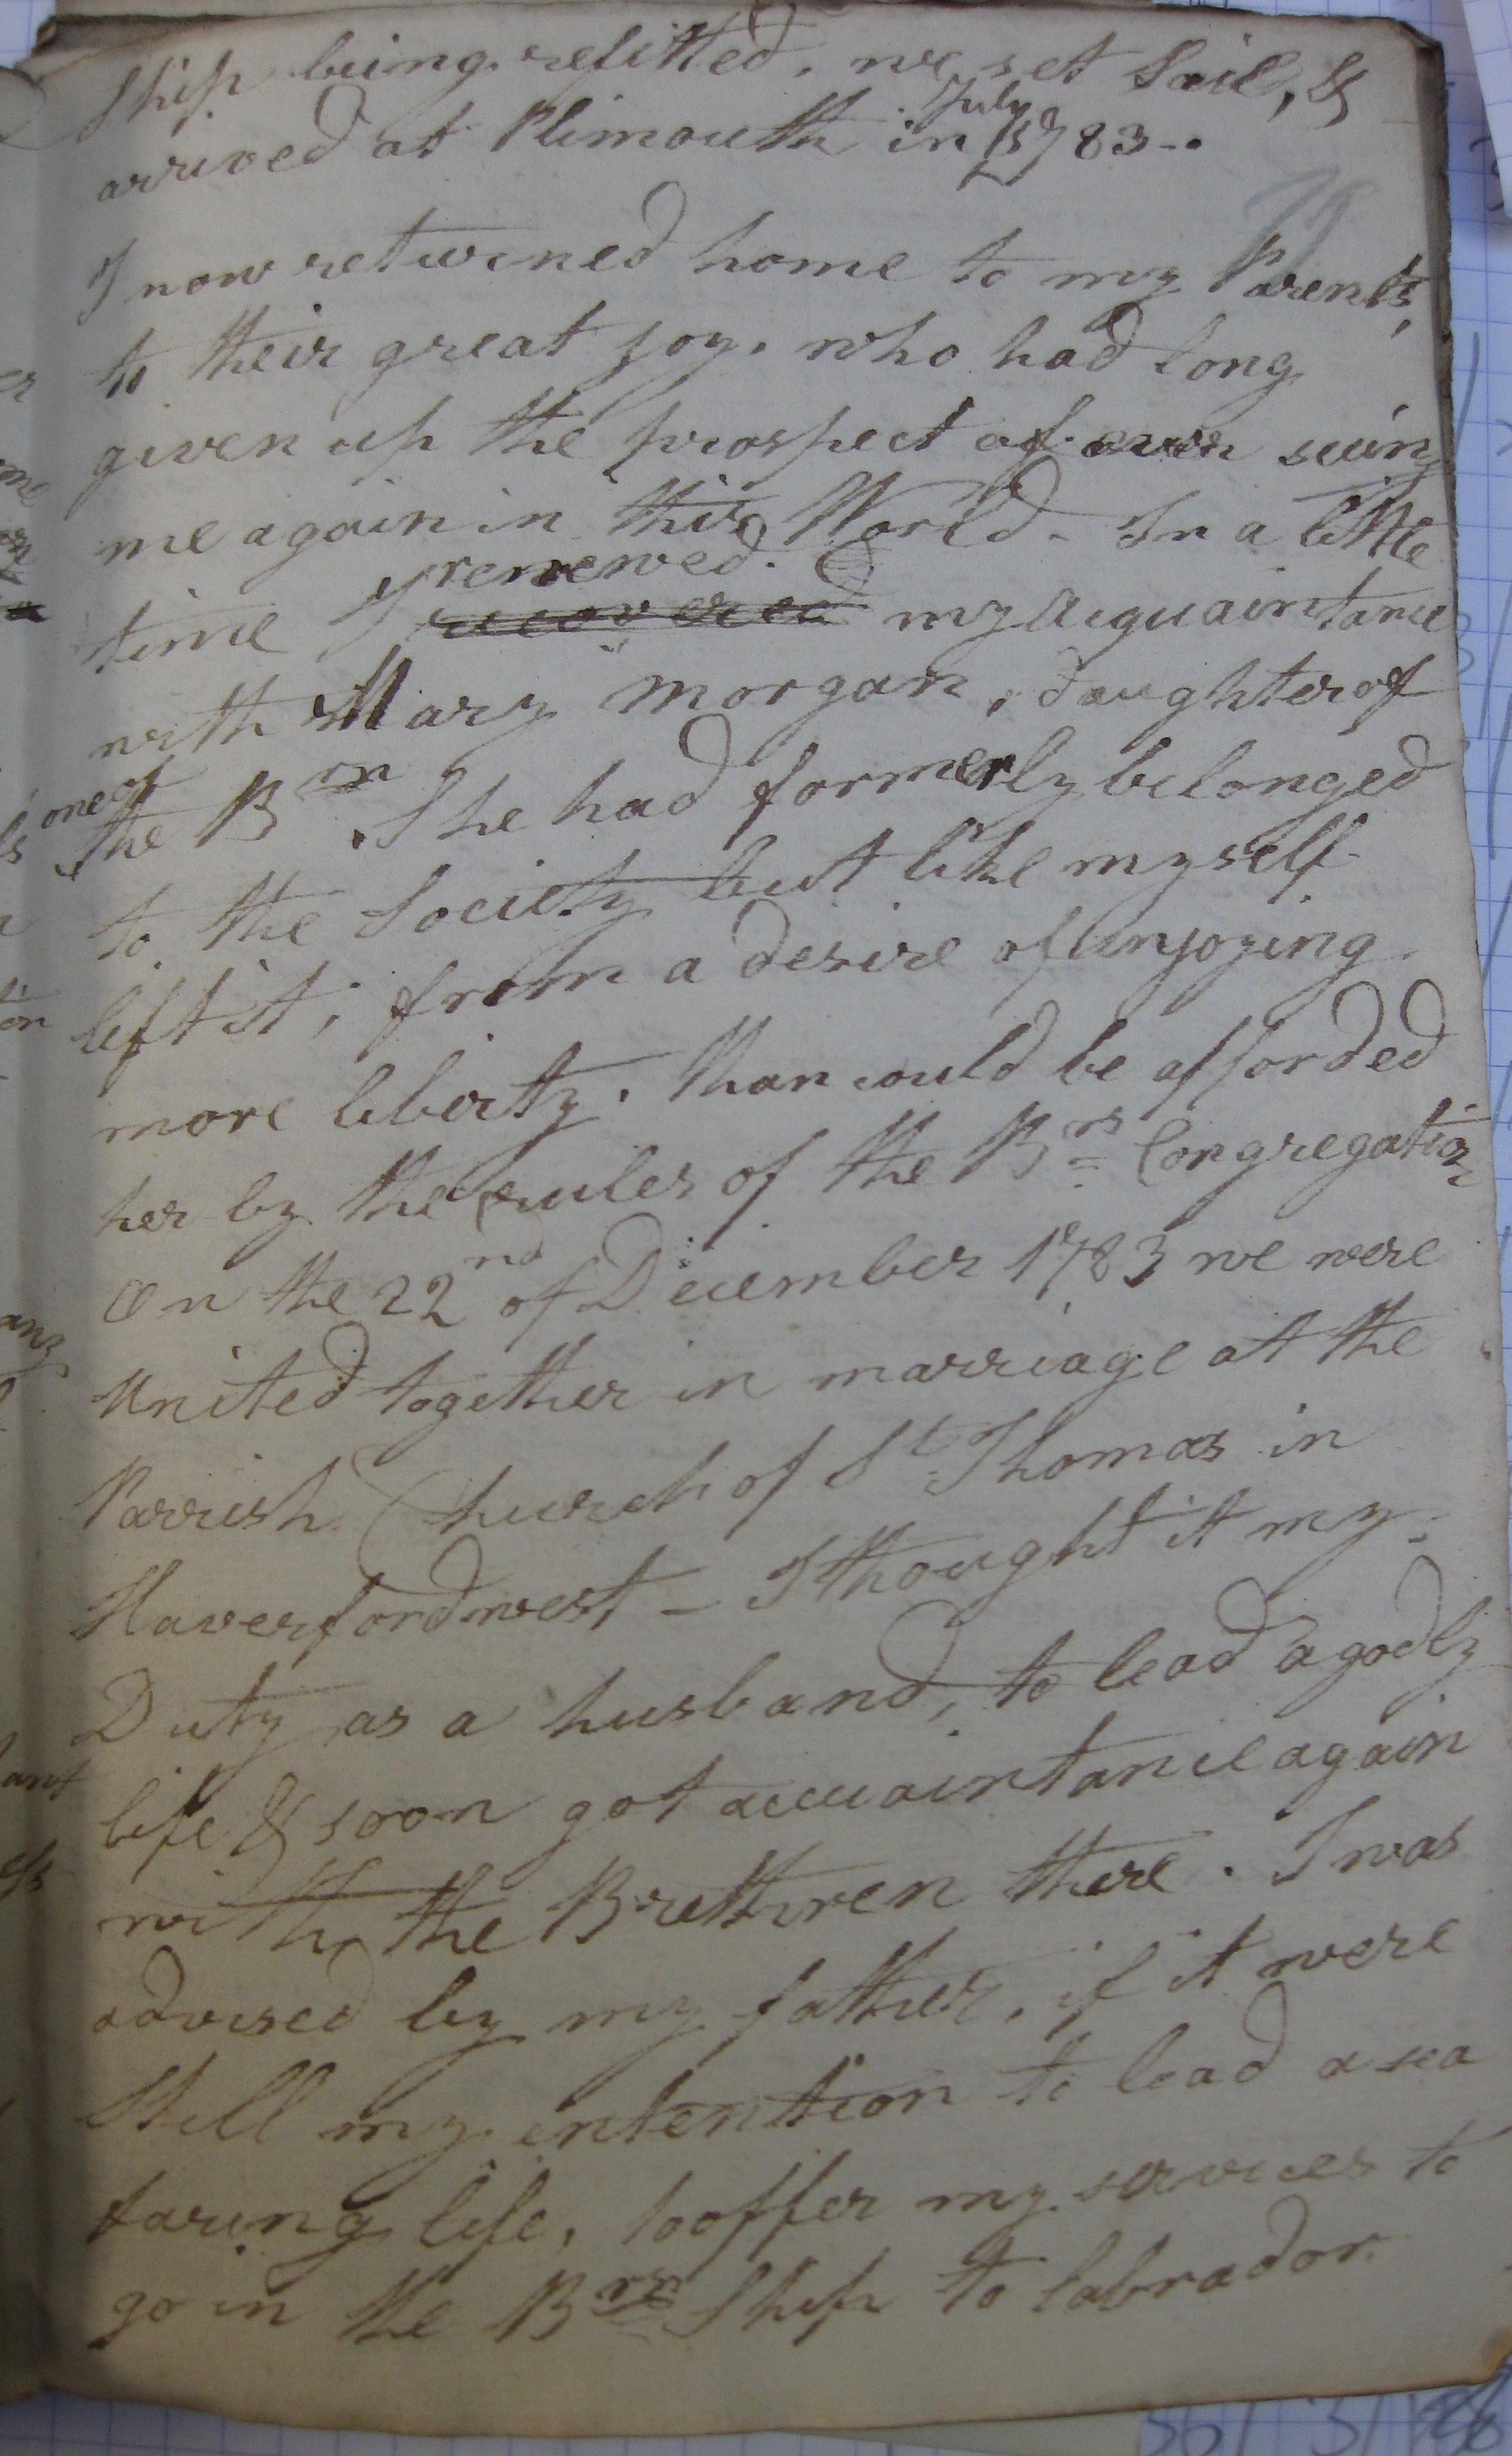 Ship being refitted, we set Sail, &
arrived at Plimouth in July 1783 -.
I now returned home to my Parents,
to their great joy, who had long
given up the prospect of ever seeing
me again in this World - In a little
time I renewed recovered my Acquaintance
with Mary Morgan, daughter of
one of the Brn. She had formerly belonged
to the Society but like myself
left it, from a desire of injoying
more liberty, than could be afforded
her by the rules of the Brs Congregation
On the 22nd of December 1783 we were
United together in marriage at the
Parrish Church of St Thomas in
Haverfordwest - I thought it my
Duty as a husband, to lead a godly
life & soon got accuaintance again
with the Brethren there. I was
advised by my father, if it were
Still my intention to lead a sea
faring life, to offer my services to
go in the Brn Ship to labrador.